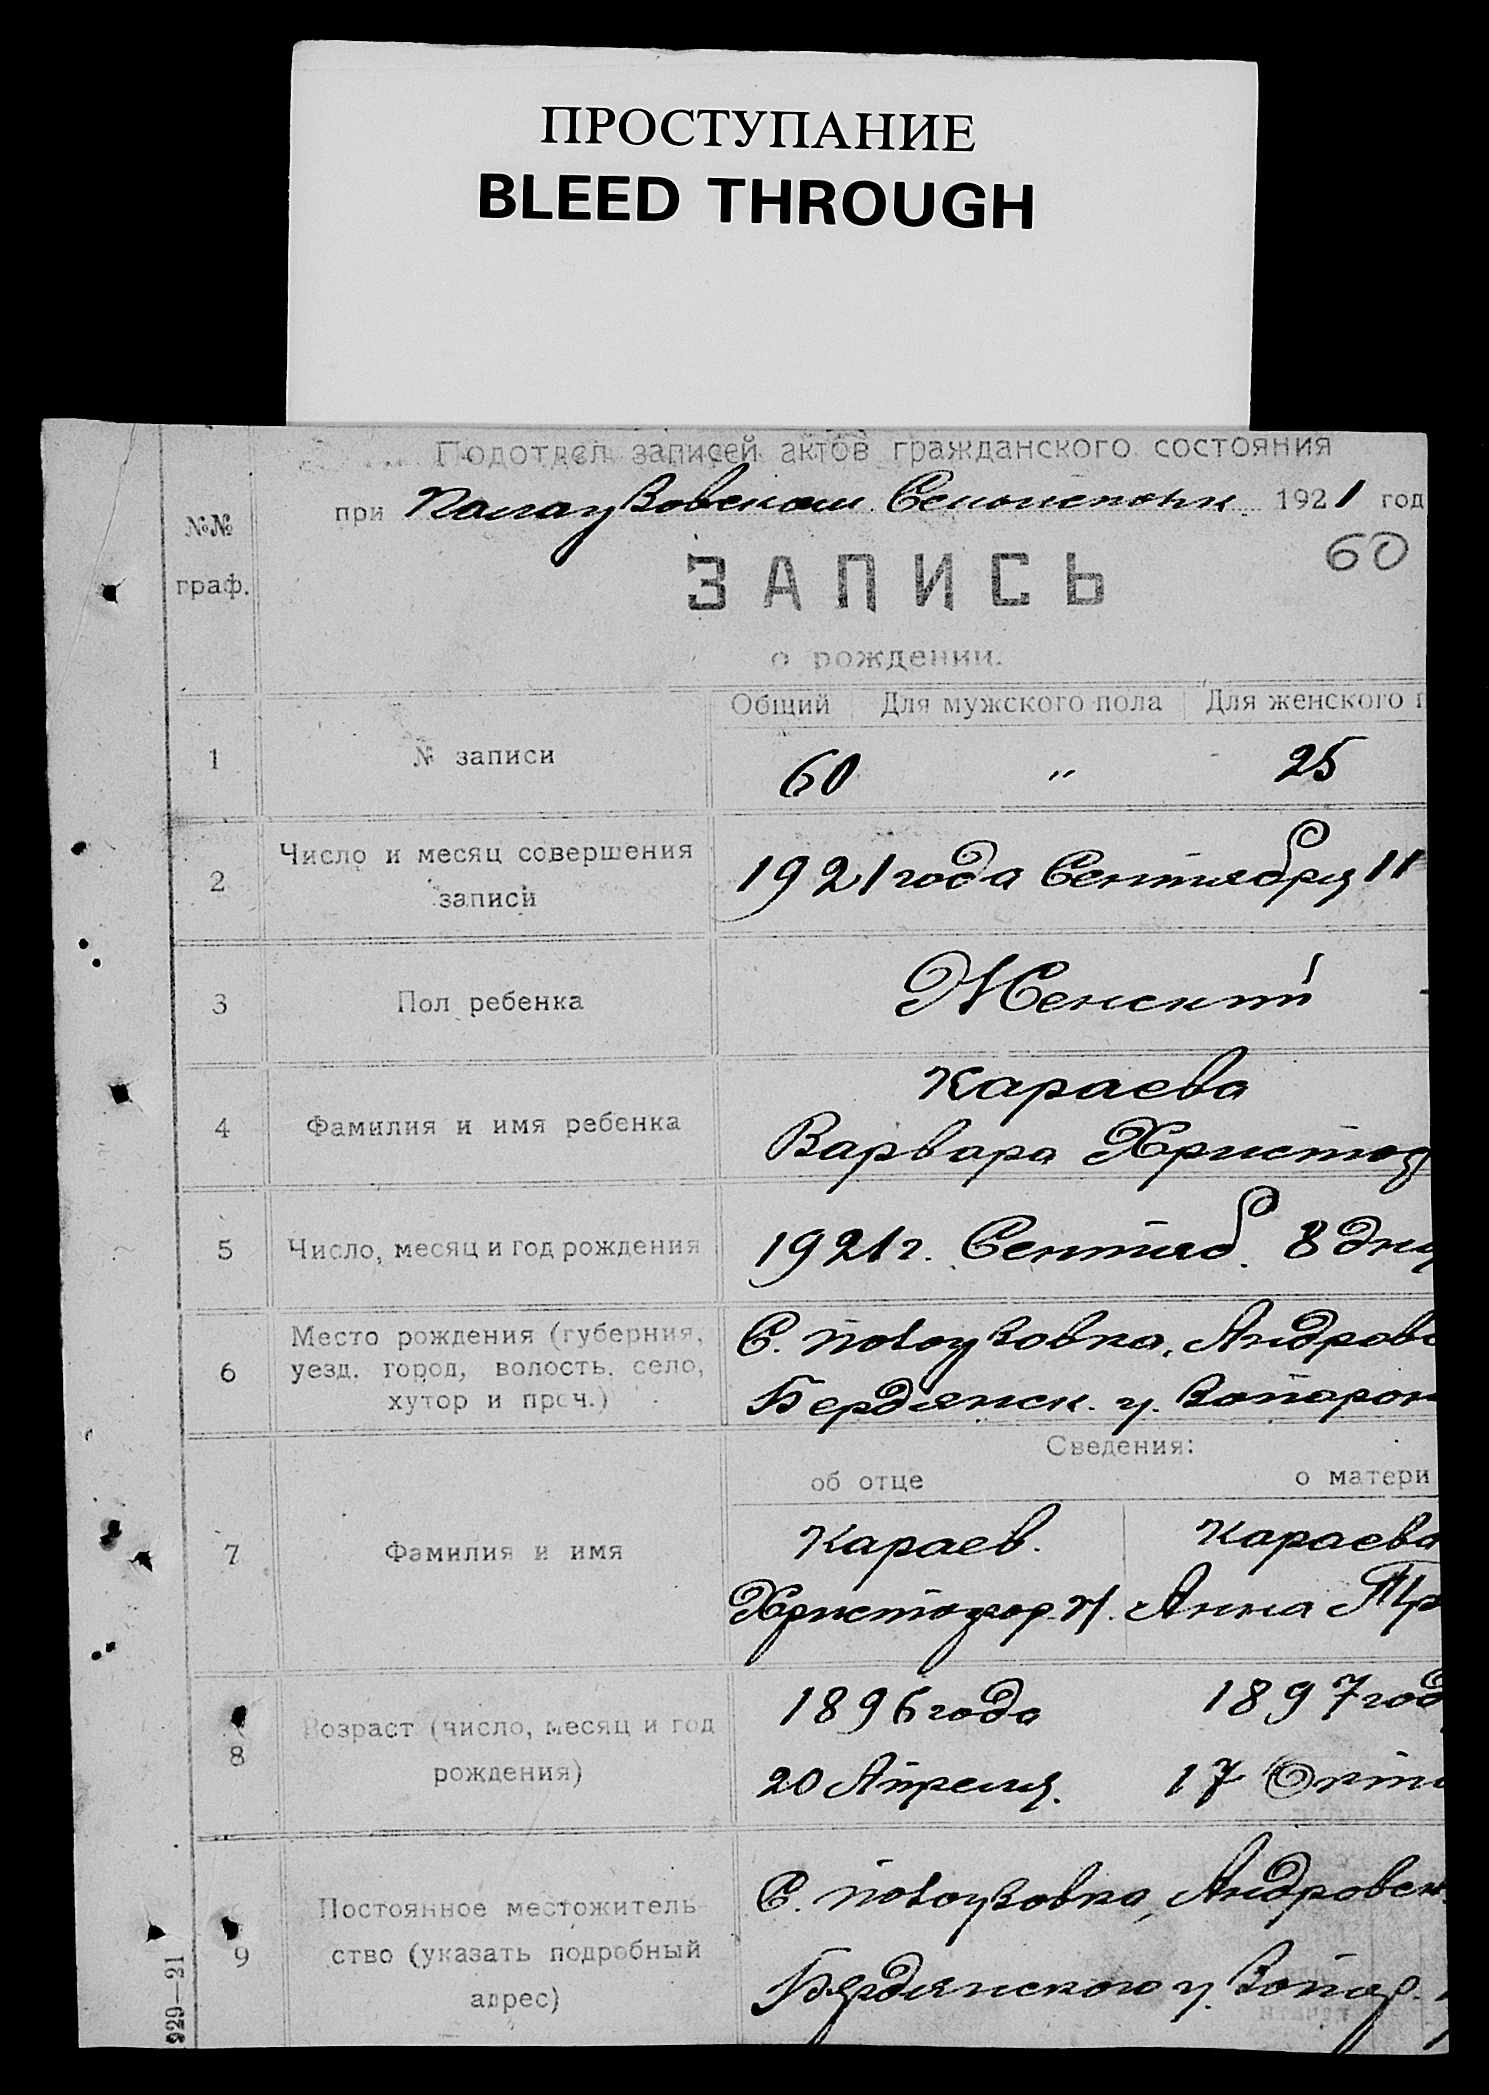 ПРОСТУПАНИЕ
BLEED THROUGH
Подотдел записей актов гражданского состояния
при 1921 год
№№
граф.
60
ЗАПИСЬ
о рождении.
Общий Для мужского пола Для женского п
1 № записи 60 " 25
2 Число и месяц совершения
записи
1921 года Сентября 11
3 Пол ребенка Женский
4 Фамилия и имя ребенка
Караева
Варвара Христоф
5 Число, месяц и год рождения 1921 г. Сентяб. 8 дня
6 Место рождения (губерния,
уезд, город, волость, село,
хутор и проч.)
С. Андровс
Бердянск. у. Запорож
Сведения:
об отце о матери
7 Фамилия и имя
Караев. Караева
Христофор И. Анна Тр
8 Возраст (число, месяц и год
рождения)
1896 года 1897 год
20 Апреля. 17 Октя
9 Постоянное местожитель-
ство (указать подробный
адрес)
С. Андровск
Бердянского у. Запор.
929—21